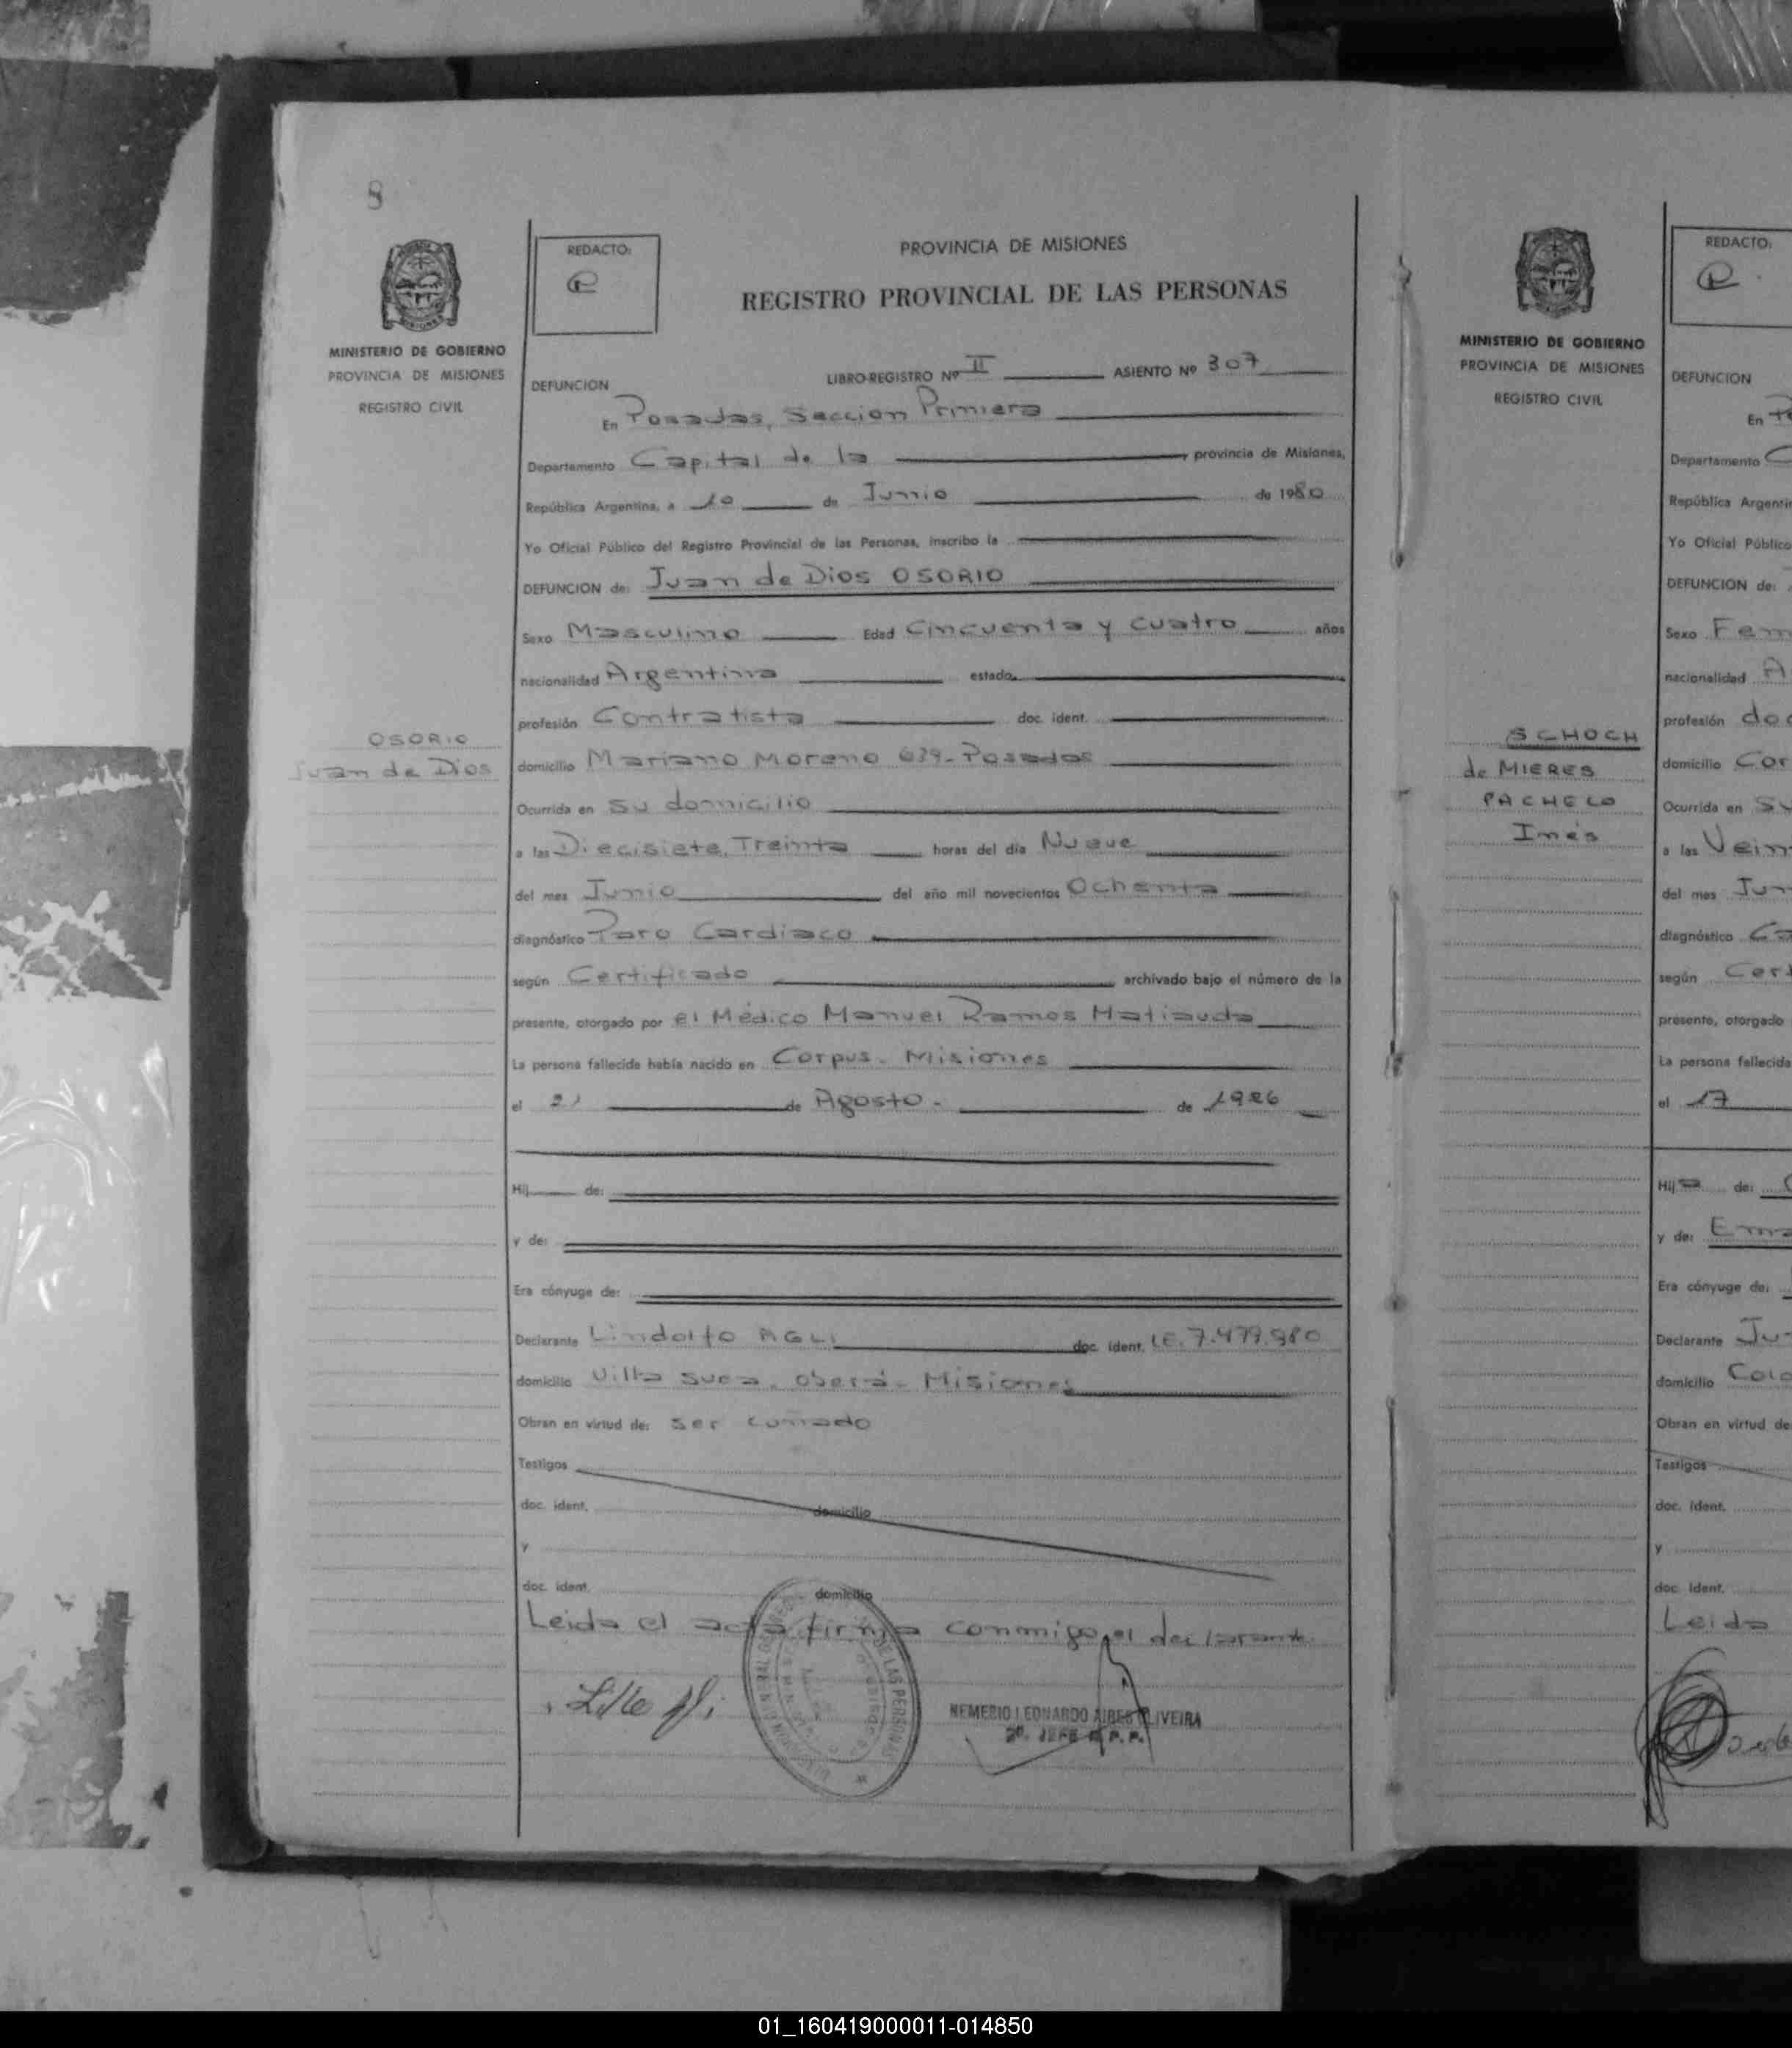 8
MINISTERIO DE GOBIERNO
PROVINCIA DE MISIONES
REGISTRO CIVIL
OSORIO
Juan de Dios
REDACTO:
PROVINCIA DE MISIONES
REGISTRO PROVINCIAL DE LAS PERSONAS
DEFUNCION LIBRO-REGISTRO Nº II ASIENTO Nº 307
En Posadas, Seccion Primera
Departamento Capital de la provincia de Misiones,
República Argentina, a 10 de Junio de 1980
Yo Oficial Público del Registro Provincial de las Personas, inscribo la
DEFUNCION de: Juan de Dios OSORIO
Sexo Masculino Edad Cincuenta y Cuatro años
nacionalidad Argentina estado
profesión Contratista doc. ident.
domicilio Mariano Moreno 639- Posadas
Ocurrida en su domicilio
a las Diecisiete, Treinta horas del día Nueve
del mes Junio del año mil novecientos Ochenta
diagnóstico Paro Cardiaco
según Certificado archivado bajo el número de la
presente, otorgado por el Médico Manuel Ramos Matiauda
La persona fallecida había nacido en Corpus- Misiones
el 21 de Agosto- de 1926
Hij de:
y de:
Era cónyuge de:
Declarante Lindolfo AGLI doc. ident. LE. 7.479.980
domicilio Villa Sueca- Oberá- Misiones
Obran en virtud de: ser cuñado
Testigos
doc. ident. domicilio
y
doc. ident. domicilio
Leida el acta firma conmigo el declarante.
DE LAS PERSONAS
NEMESIO LEONARDO AIRES OLIVEIRA
2º JEFE R. P. P.
MINISTERIO DE GOBIERNO
PROVINCIA DE MISIONES
REGISTRO CIVIL
SCHOCH
de MIERES
PACHECO
Inés
REDACTO:
DEFUNCION
En
Departamento
República Argentin
Yo Oficial Público
DEFUNCION de:
Sexo Fem
nacionalidad A
profesión doc
domicilio Cor
Ocurrida en su
a las Vein
del mes Jun
diagnóstico Ca
según Cert
presente, otorgado
La persona fallecida
el 17
Hija de:
y de: Ema
Era cónyuge de:
Declarante Ju
domicilio Colo
Obran en virtud de
Testigos
doc. ident.
y
doc. ident.
Leida
01_160419000011-014850